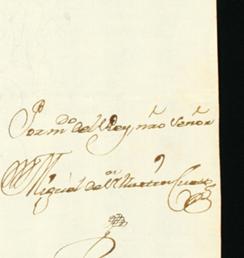 Por m.do del Rey nr̃o Señor
Miguel de S.n Martin Cueto